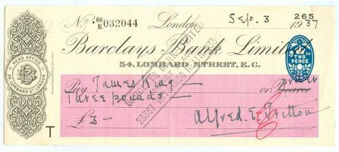 No E 032044 London, Sep. 3 1937
265
Barclays Bank Limited
54, LOMBARD STREET, E.C.
HEAD OFFICE
54 LOMBARD ST. LONDON
TWO PENCE
Pay James King or Bearer
Three pounds
£3
Alfred. E.
T